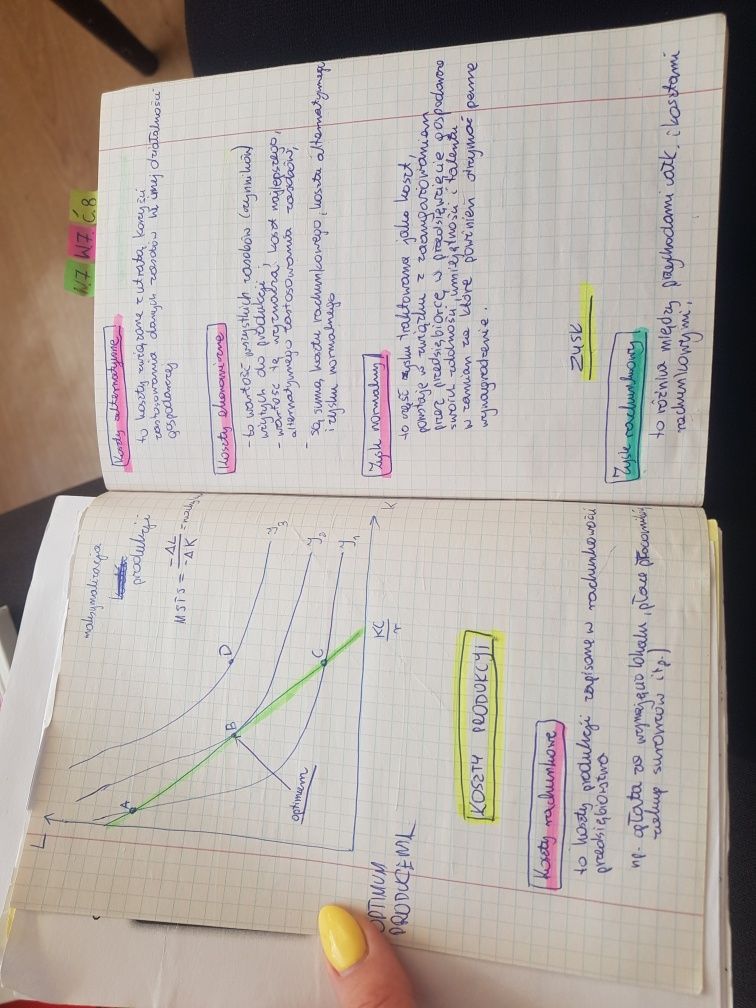 maksymalizacja
produkcji
MSTS = -ΔL / -ΔK
L
A
B
C
D
optimum
y3
y2
y1
KC / r
K
OPTIMUM
PRODUCENTA
KOSZTY PRODUKCJI
Koszty rachunkowe
to koszty produkcji zapisane w rachunkowości
przedsiębiorstwa
np. opłata za wynajęcie lokalu, płace pracowników,
zakup surowców itp.)
W7 W7 Ć8
Koszty alternatywne
to koszty związane z utratą korzyści
zastosowania danych zasobów w innej działalności
gospodarczej
Koszty ekonomiczne
- to wartość wszystkich zasobów (czynników)
użytych do produkcji
- wartość tę wyznacza koszt najlepszego,
alternatywnego zastosowania zasobów,
- są sumą kosztu rachunkowego, kosztu alternatywnego
i zysku normalnego
Zysk normalny
to część zysku traktowana jako koszt,
powstaje w związku z zaangażowaniem
przez przedsiębiorcę w przedsięwzięcie gospodarcze
swoich zdolności, umiejętności i talentu
w zamian za które powinien otrzymać pewne
wynagrodzenie.
ZYSK
Zysk rachunkowy
to różnica między przychodami całk. i kosztami
rachunkowymi.